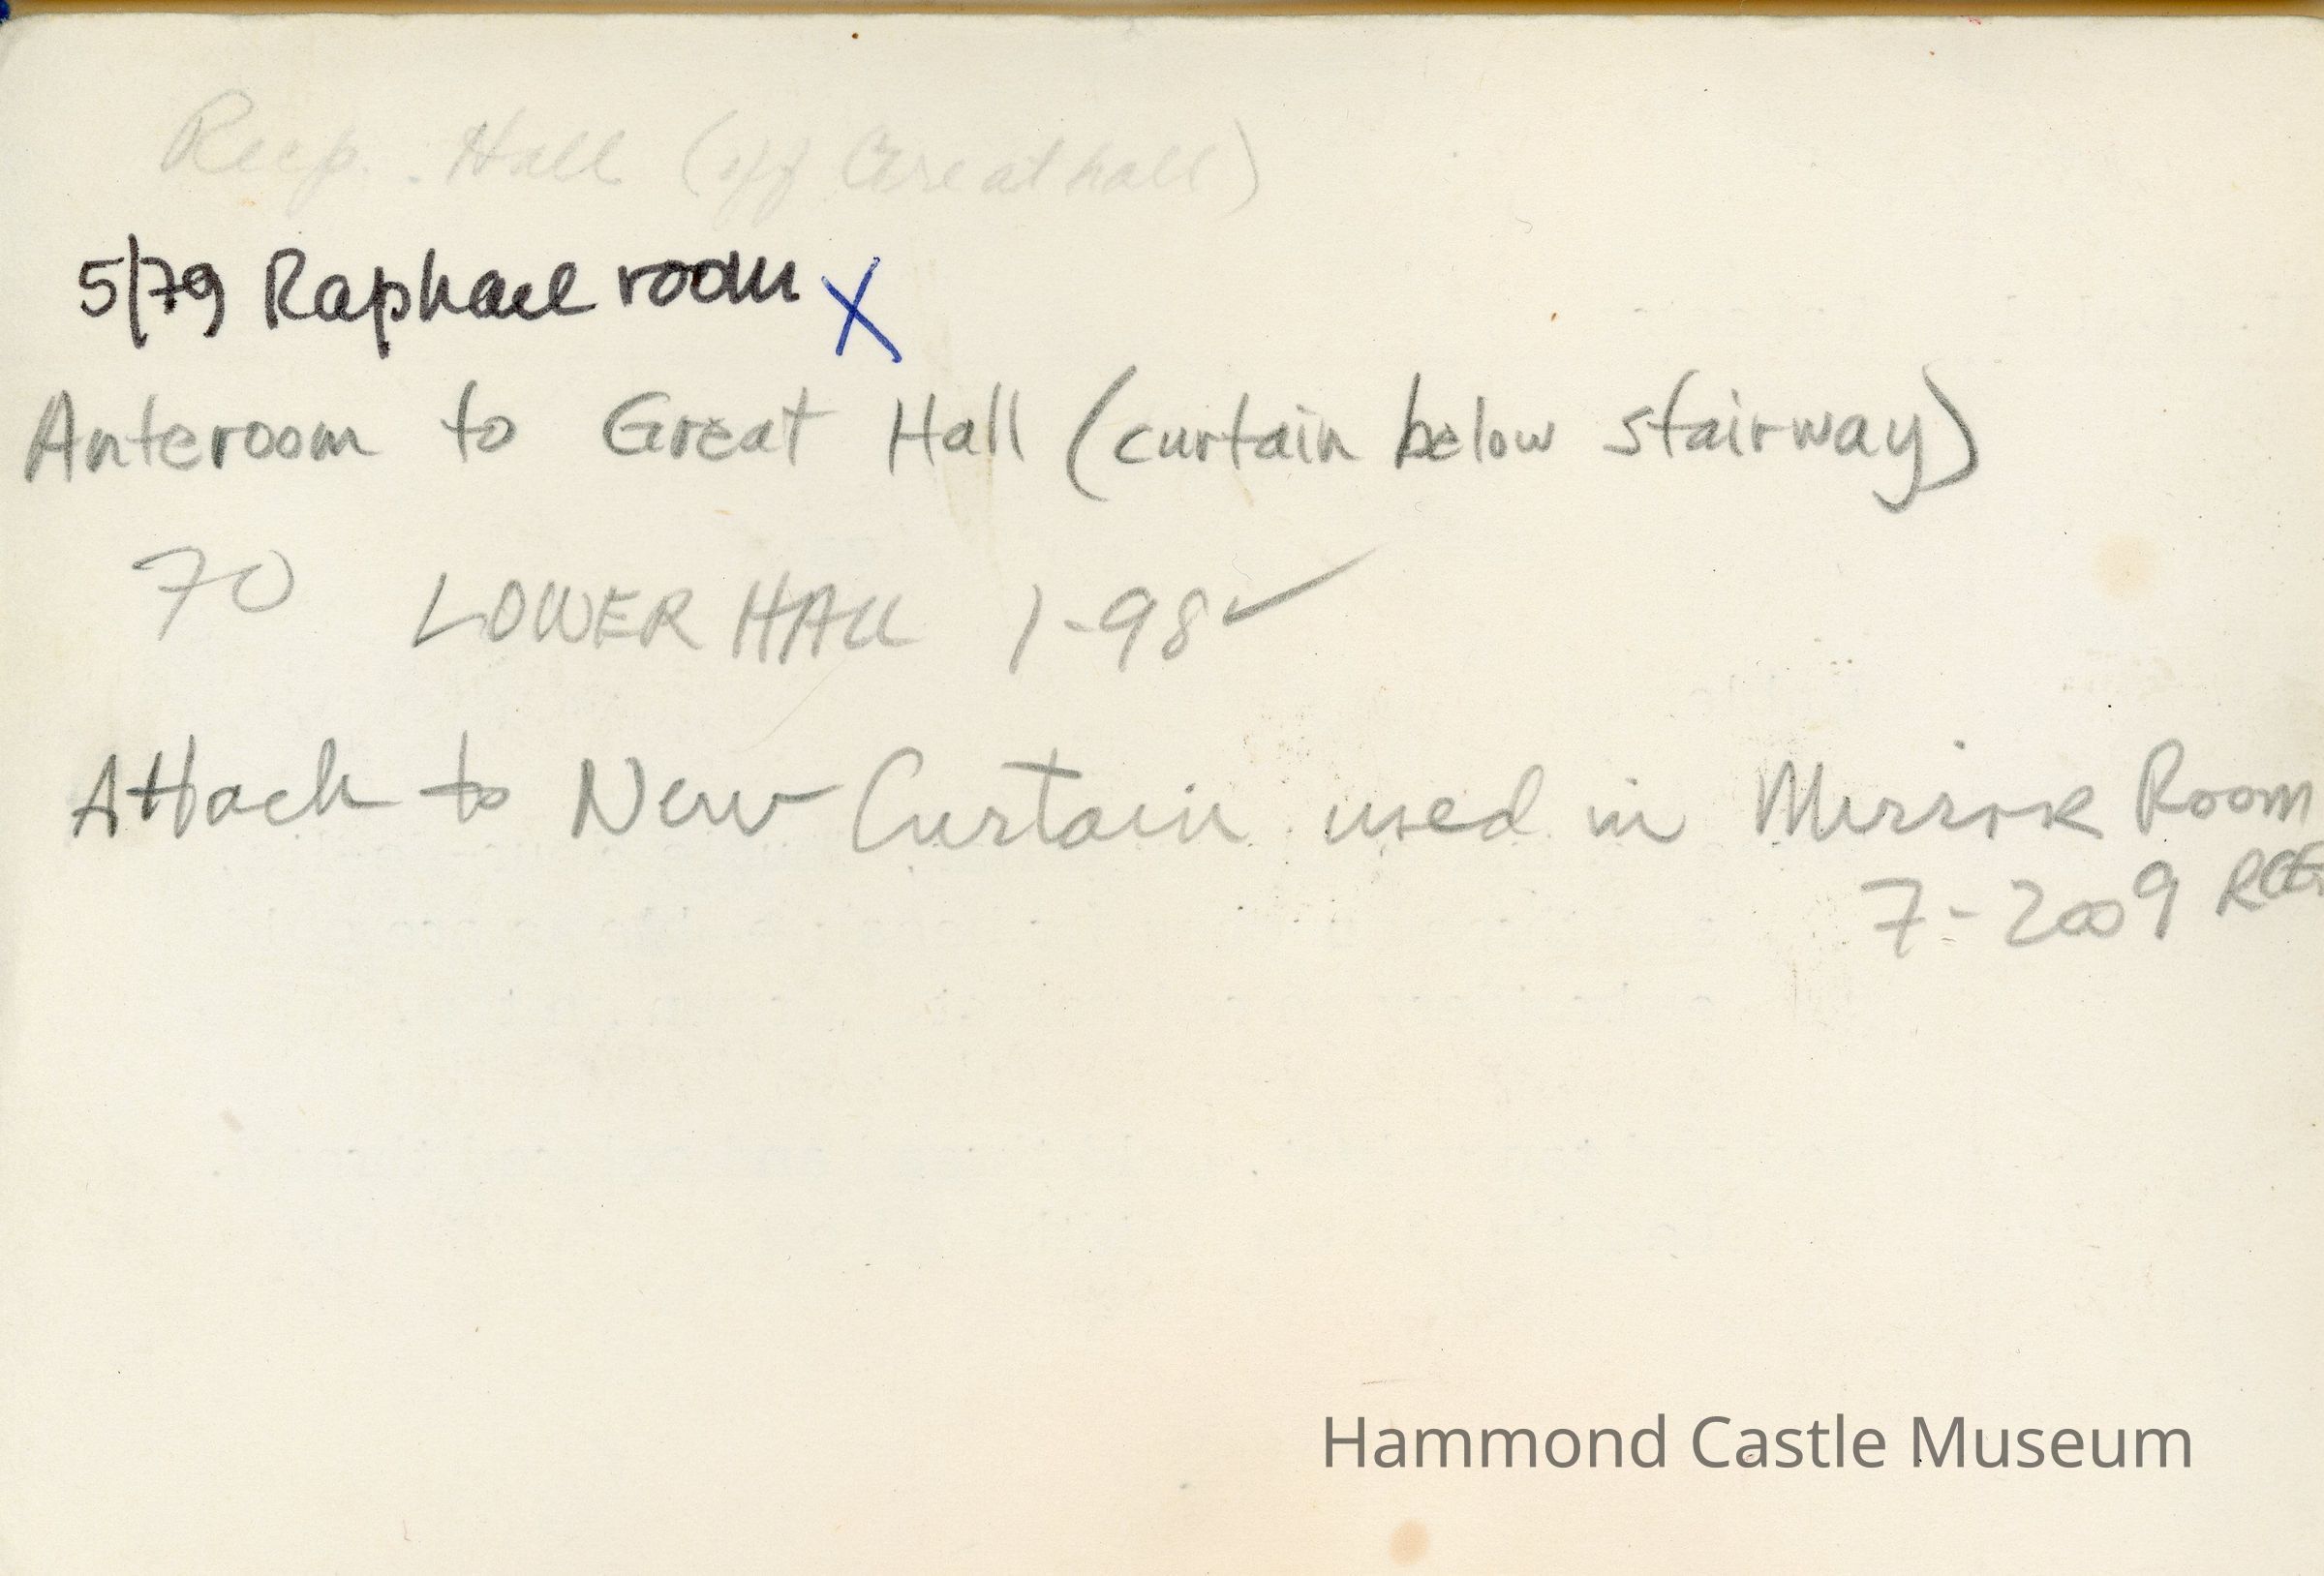 Recp. Hall (off Great hall)
5/79 Raphael room X
Anteroom to Great Hall (curtain below stairway)
70 LOWER HALL 1-98 ✓
Attach to New Curtain used in Mirror Room
7-2009
Hammond Castle Museum